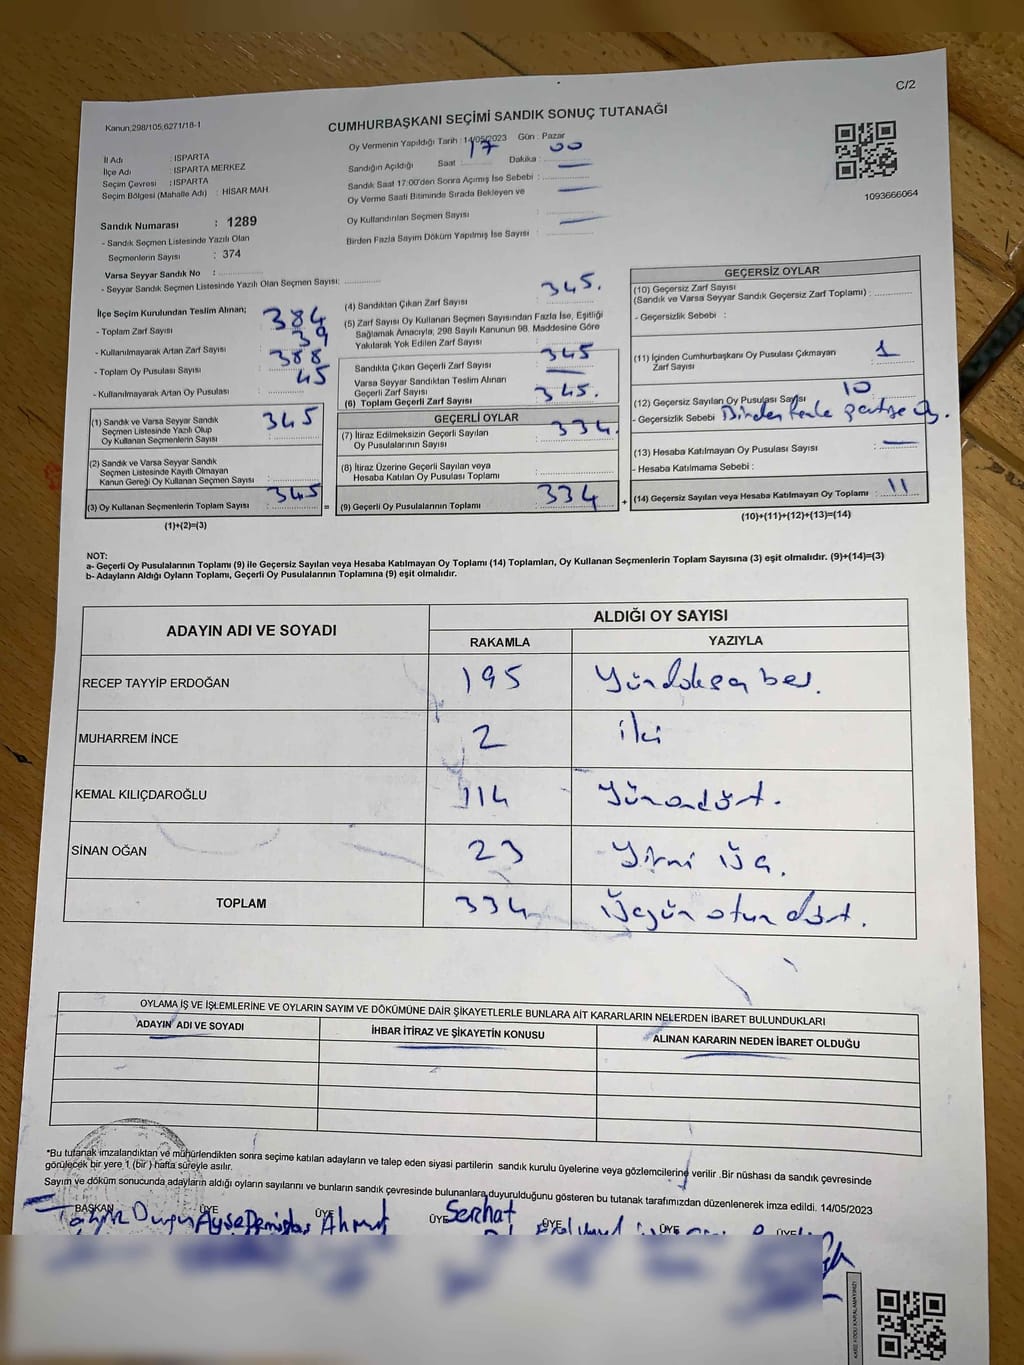 C/2
Kanun;298/105;6271/18-1
CUMHURBAŞKANI SEÇİMİ SANDIK SONUÇ TUTANAĞI
İl Adı : ISPARTA
İlçe Adı : ISPARTA MERKEZ
Seçim Çevresi : ISPARTA
Seçim Bölgesi (Mahalle Adı) : HİSAR MAH
Sandık Numarası : 1289
- Sandık Seçmen Listesinde Yazılı Olan
Seçmenlerin Sayısı : 374
Varsa Seyyar Sandık No :
- Seyyar Sandık Seçmen Listesinde Yazılı Olan Seçmen Sayısı:
Oy Vermenin Yapıldığı Tarih : 14/05/2023 Gün : Pazar
Sandığın Açıldığı Saat : 17 Dakika : 00
Sandık Saat 17:00'den Sonra Açımış İse Sebebi :
Oy Verme Saati Bitiminde Sırada Bekleyen ve
Oy Kullandırılan Seçmen Sayısı :
Birden Fazla Sayım Döküm Yapılmış İse Sayısı :
1093666064
İlçe Seçim Kurulundan Teslim Alınan;
- Toplam Zarf Sayısı 384
- Kullanılmayarak Artan Zarf Sayısı 39
- Toplam Oy Pusulası Sayısı 388
- Kullanılmayarak Artan Oy Pusulası 45
(1) Sandık ve Varsa Seyyar Sandık
Seçmen Listesinde Yazılı Olup
Oy Kullanan Seçmenlerin Sayısı 345
(2) Sandık ve Varsa Seyyar Sandık
Seçmen Listesinde Kayıtlı Olmayan
Kanun Gereği Oy Kullanan Seçmen Sayısı :
(3) Oy Kullanan Seçmenlerin Toplam Sayısı : 345
(1)+(2)=(3)
(4) Sandıktan Çıkan Zarf Sayısı 345.
(5) Zarf Sayısı Oy Kullanan Seçmen Sayısından Fazla İse, Eşitliği
Sağlamak Amacıyla, 298 Sayılı Kanunun 98. Maddesine Göre
Yakılarak Yok Edilen Zarf Sayısı
Sandıkta Çıkan Geçerli Zarf Sayısı 345
Varsa Seyyar Sandıktan Teslim Alınan
Geçerli Zarf Sayısı
(6) Toplam Geçerli Zarf Sayısı 345.
GEÇERLİ OYLAR
(7) İtiraz Edilmeksizin Geçerli Sayılan
Oy Pusulalarının Sayısı 334.
(8) İtiraz Üzerine Geçerli Sayılan veya
Hesaba Katılan Oy Pusulası Toplamı
= (9) Geçerli Oy Pusulalarının Toplamı 334 +
GEÇERSİZ OYLAR
(10) Geçersiz Zarf Sayısı
(Sandık ve Varsa Seyyar Sandık Geçersiz Zarf Toplamı) :
- Geçersizlik Sebebi :
(11) İçinden Cumhurbaşkanı Oy Pusulası Çıkmayan
Zarf Sayısı 1
(12) Geçersiz Sayılan Oy Pusulası Sayısı 10
- Geçersizlik Sebebi Birden fazla partiye oy.
(13) Hesaba Katılmayan Oy Pusulası Sayısı :
- Hesaba Katılmama Sebebi :
(14) Geçersiz Sayılan veya Hesaba Katılmayan Oy Toplamı : 11
(10)+(11)+(12)+(13)=(14)
NOT:
a- Geçerli Oy Pusulalarının Toplamı (9) ile Geçersiz Sayılan veya Hesaba Katılmayan Oy Toplamı (14) Toplamları, Oy Kullanan Seçmenlerin Toplam Sayısına (3) eşit olmalıdır. (9)+(14)=(3)
b- Adayların Aldığı Oyların Toplamı, Geçerli Oy Pusulalarının Toplamına (9) eşit olmalıdır.
ADAYIN ADI VE SOYADI
ALDIĞI OY SAYISI
RAKAMLA YAZIYLA
RECEP TAYYİP ERDOĞAN 195 Yüzdoksan beş.
MUHARREM İNCE 2 iki
KEMAL KILIÇDAROĞLU 114 Yüzondört.
SİNAN OĞAN 23 Yirmi üç.
TOPLAM 334 Üçyüz otuz dört.
OYLAMA İŞ VE İŞLEMLERİNE VE OYLARIN SAYIM VE DÖKÜMÜNE DAİR ŞİKAYETLERLE BUNLARA AİT KARARLARIN NELERDEN İBARET BULUNDUKLARI
ADAYIN ADI VE SOYADI İHBAR İTİRAZ VE ŞİKAYETİN KONUSU ALINAN KARARIN NEDEN İBARET OLDUĞU
*Bu tutanak imzalandıktan ve mühürlendikten sonra seçime katılan adayların ve talep eden siyasi partilerin sandık kurulu üyelerine veya gözlemcilerine verilir .Bir nüshası da sandık çevresinde
görülecek bir yere 1 (bir ) hafta süreyle asılır.
Sayım ve döküm sonucunda adayların aldığı oyların sayılarını ve bunların sandık çevresinde bulunanlara duyurulduğunu gösteren bu tutanak tarafımızdan düzenlenerek imza edildi. 14/05/2023
BAŞKAN ÜYE ÜYE ÜYE ÜYE ÜYE ÜYE
Ayşe Demirtaş Ahmet Serhat